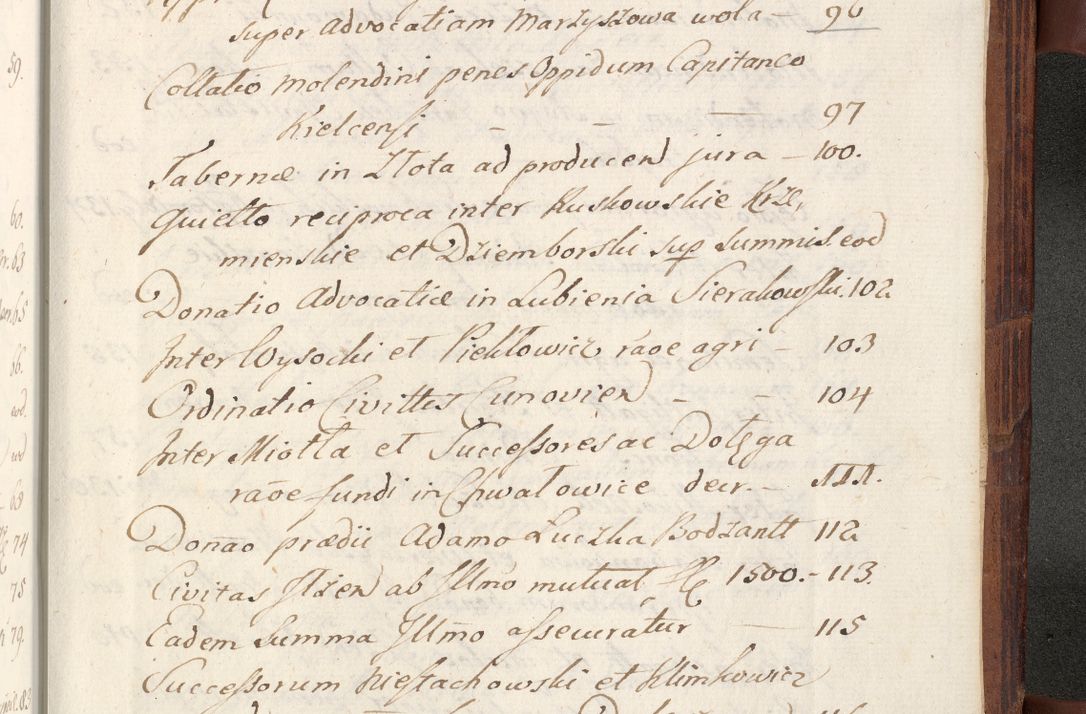 super Advocatiam Marzyszowa wola — 96
Collatio molendini penes Oppidum Capitaneo
Kielcensi — — — 97
Tabernæ in Złota ad producen jura — 100.
Quietto reciproca inter Ruskowskie Krze,
mienskie et Dziemborski sup summis. eod
Donatio Advocatiæ in Lubienia Sierakowski. 102
Inter Wysocki et Piekłowicz raōe agri — 103
Ordinatio Civittes Cunovien — — 104
Inter Miotła et Successores ac Dołęga
raōe fundi in Chwałowice decr. — 111.
Donāo prædii Adamo Łuczka Bodzantt 112
Civitas Iłżen ab Illmo mutual fl 1500. — 113.
Eadem Summa Illm̄o assecuratur — 115
Successorum Niestachowski et Klimkowicz
59.
60.
63
65
66.
eod.
69
74
75
79.
83